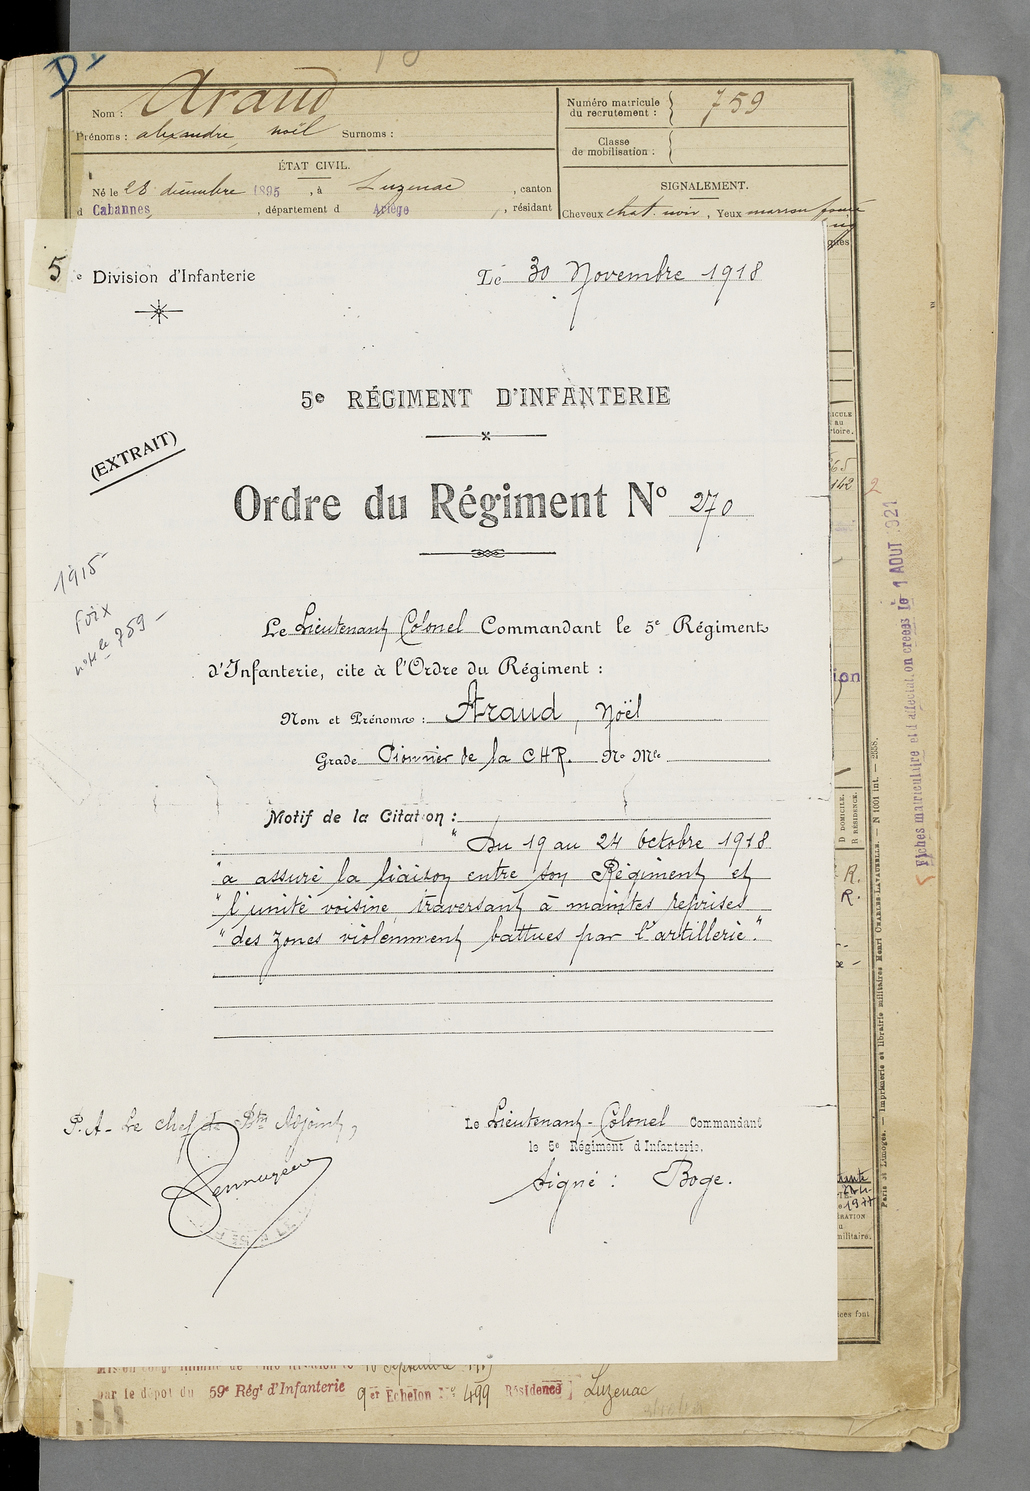 Nom : Araud
Numéro matricule du recrutement : 759
Prénoms : alexandre, noël Surnoms :
Classe de mobilisation :
ÉTAT CIVIL.
SIGNALEMENT.
Né le 28 décembre 1895, à Luzenac, canton
d Cabannes, département d Ariège, résidant
Cheveux chat. noir, Yeux marron foncé
5e Division d'Infanterie
Le 30 Novembre 1918
5e RÉGIMENT D'INFANTERIE
(EXTRAIT)
Ordre du Régiment No 270
1915
Foix
n° mle 759 -
Le Lieutenant Colonel Commandant le 5e Régiment
d'Infanterie, cite à l'Ordre du Régiment :
Nom et Prénoms : Araud, Noël
Grade Pionnier de la CHR. No Mle
Motif de la Citation :
" Du 19 au 24 octobre 1918
"a assuré la liaison entre son Régiment et
"l'unité voisine, traversant à maintes reprises
"des zones violemment battues par l'artillerie."
P.A- Le chef de Btn Adjoint,
Le Lieutenant-Colonel Commandant
le 5e Régiment d'Infanterie.
Signé : Boge.
par le dépôt du 59e Régt d'Infanterie 9er Echelon No 499 Résidence Luzenac
Fiches matriculaire et d'affectation créées le 1 AOUT 1921
Paris et Limoges. — Imprimerie et librairie militaires Henri CHARLES-LAVAUZELLE. — N 1001 int. — 2658.
D DOMICILE.
R RÉSIDENCE.
R.
R.